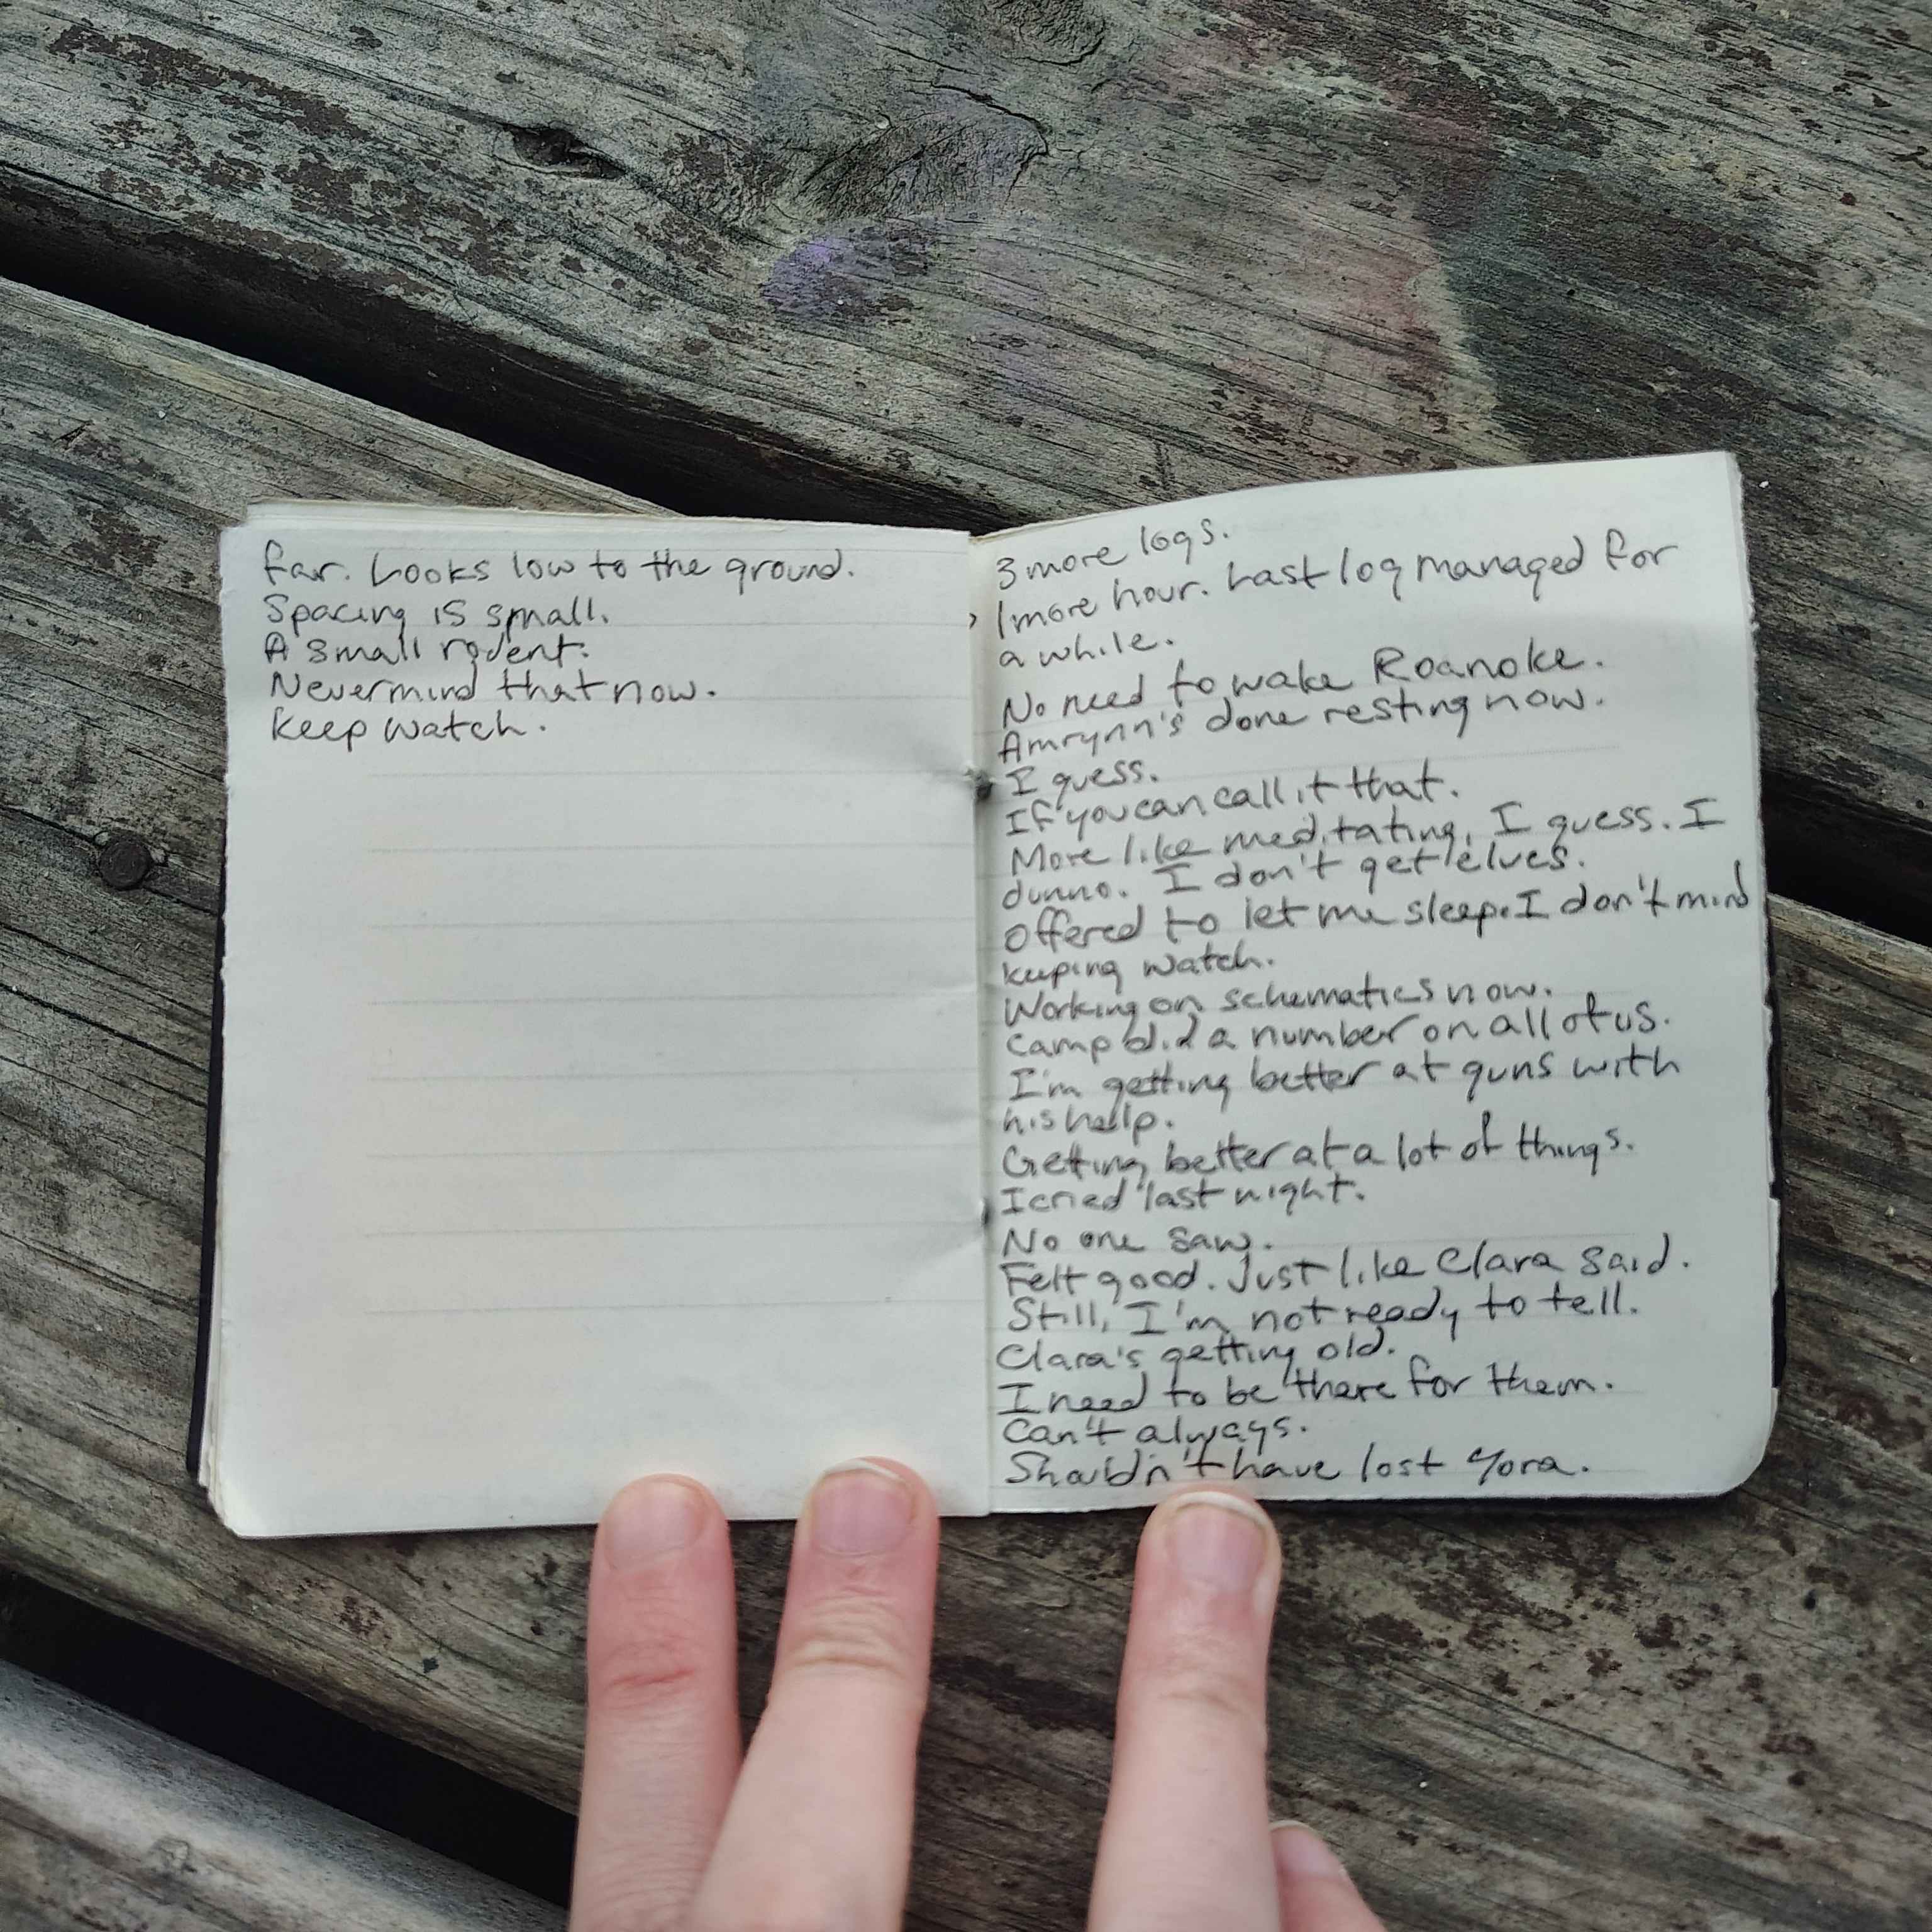 far. Looks low to the ground.
Spacing is small.
A small rodent.
Nevermind that now.
Keep watch.
3 more logs.
1 more hour. Last log managed for
a while.
No need to wake Roanoke.
Amrynn's done resting now.
I guess.
If you can call it that.
More like meditating, I guess. I
dunno. I don't get elves.
Offered to let me sleep. I don't mind
keeping watch.
Working on schematics now.
Camp did a number on all of us.
I'm getting better at guns with
his help.
Getting better at a lot of things.
I cried last night.
No one saw.
Felt good. Just like Clara said.
Still, I'm not ready to tell.
Clara's getting old.
I need to be there for them.
Can't always.
Shouldn't have lost Yora.